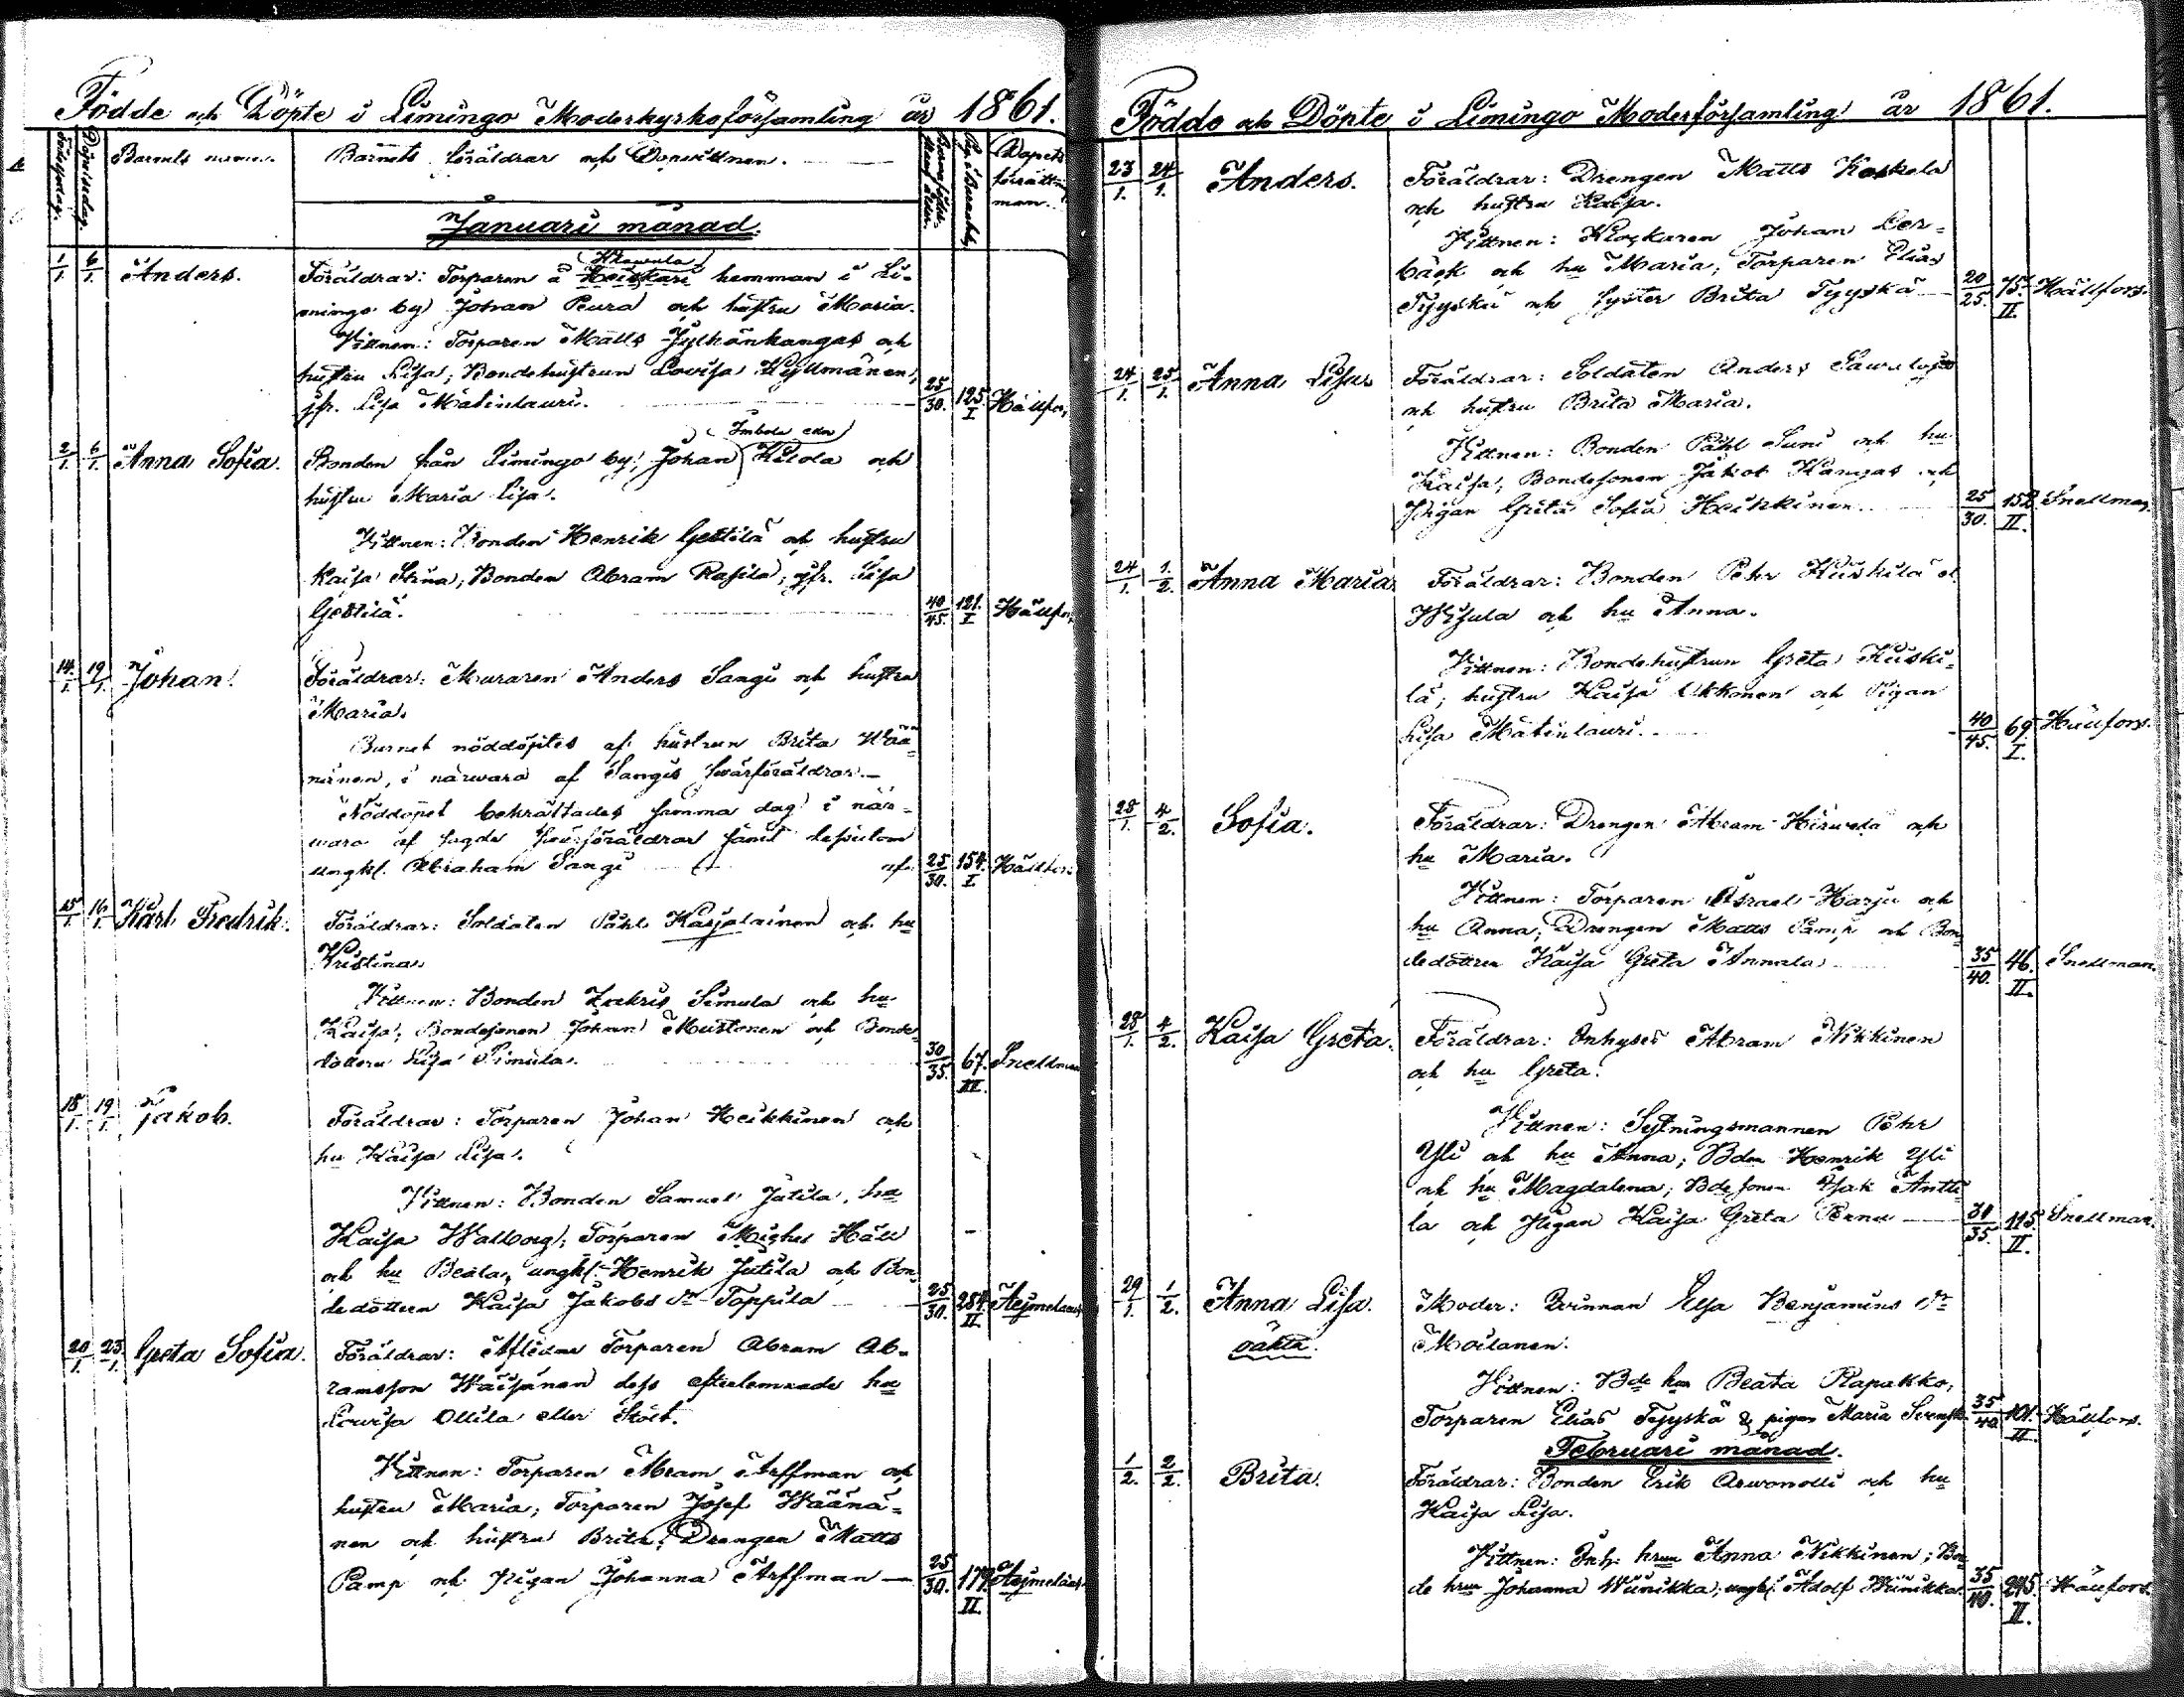 Födde och Döpte i Limingo Moderkyrkoförsamling år 1861.
Födelsedag. Döpelsedag. Barnets namn. Barnets föräldrar och Dopvittnen. Dopets förrättningsman.
Januari månad.
1/1. 6/1. Anders. Föräldrar: Torparen å Heiskari hemman i Li-
mingo by Johan Peura och hustru Maria.
Vittnen: Torparen Matts Jylhänkangas och
hustru Lisa; Bondehustrun Lovisa Kyllmänen,
jfr. Lisa Matinlauri. 25/30. 125. I. Hällfors
Imbola eller
2/1. 6/1. Anna Sofia. Bonden från Limingo by, Johan Kilola och
hustru Maria Lisa.
Vittnen: Bonden Henrik Gestilä och hustru
Kaisa Stina; Bonden Abram Rasila; jfr. Lisa
Gestilä. 40/45. 121. I. Hällfors
14/1. 19/1. Johan. Föräldrar: Muraren Anders Sangi och hustru
Maria.
Barnet nöddöptes af hustrun Brita Wää-
nänen, i närwaro af Sangis swärföräldrar.—
Nöddopet bekräftades samma dag i när-
waro af sagde swärföräldrar samt dessutom
ungkl. Abraham Sangi af 25/30. 154. I. Hällfors
15/1. 16/1. Karl Fredrik. Föräldrar: Soldaten Påhl Karjalainen och hu
Kristina.
Vittnen: Bonden Zakris Simula och hu
Kaisa; Bondesonen Johan Mustonen och Bonde-
dottern Lisa Simula. 30/35. 67. III. Snellman
18/1. 19/1. Jakob. Föräldrar: Torparen Johan Heikkinen och
hu Kaisa Lisa.
Vittnen: Bonden Samuel Jutila, hu
Kaisa Walborg; Torparen Michel Häll
och hu Beata, ungkl. Henrik Jutila och Bon-
dedottern Kaisa Jakobs dr Toppila 25/30. 284. II. Aejmelaeus
20/1. 23/1. Greta Sofia. Föräldrar: Aflidne Torparen Abram Ab-
ramsson Wäisänen dess efterlemnade hu
Lovisa Ollila eller Stolt.
Vittnen: Torparen Abram Arffman och
hustru Maria; Torparen Josef Wäänä-
nen och hustru Brita; Drengen Matts
Pamp och Pigan Johanna Arffman — 25/30. 179. II. Aejmelaeus
Födde och Döpte i Limingo Moderförsamling år 1861.
23/1. 24/1. Anders. Föräldrar: Drengen Matts Koskela
och hustru Kaisa.
Vittnen: Klockaren Johan Ler-
bäck och hu Maria; Torparen Elias
Tyyskä och syster Brita Tyyskä 20/25. 75. II. Hällfors.
24/1. 25/1. Anna Lisa Föräldrar: Soldaten Anders
och hustru Brita Maria.
Vittnen: Bonden Påhl Suni och hu
Kaisa; Bondesonen Jakob Kangas och
Pigan Greta Sofia Heikkinen. 25/30. 152. II. Snellman.
24/1. 1/2. Anna Maria. Föräldrar: Bonden Pehr Kiiskilä el
Wisula och hu Anna.
Vittnen: Bondehustrun Greta Kiiski-
lä; hustru Kaisa Ukkonen och Pigan
Lisa Matinlauri. 40/45. 69. I. Hällfors.
28/1. 4/2. Sofia. Föräldrar: Drengen Abram Hirwelä och
hu Maria.
Vittnen: Torparen Israel Harju och
hu Anna; Drengen Matts Pamp och Bon-
dedottren Kaisa Greta Annala 35/40. 46. II. Snellman.
28/1. 4/2. Kaisa Greta. Föräldrar: Inhyses Abram Nikkinen
och hu Greta.
Vittnen: Sytningsmannen Pehr
Yli och hu Anna; Bdn Henrik Yli
och hu Magdalena; Bdesonen Isak Antti-
la och Pigan Kaisa Greta Pernu — 115. II. Snellman.
29/1. 1/2. Anna Lisa. Moder: Qvinnan Elsa Benjamins dr
oäkta. Moilanen.
Vittnen: Bde hun Beata Rapakko,
Torparen Elias Tyyskä & pigan Maria 35/40. 101. II. Hällfors.
Februari månad.
1/2. 2/2. Brita. Föräldrar: Bonden Erik Arwonolli och hu
Kaisa Lisa.
Vittnen: Inh: hrun Anna Nikkinen; Bon-
de hrun Johanna Wiinikka; ungkl. Adolf Wiinikka 35/40. 275. II. Hällfors.